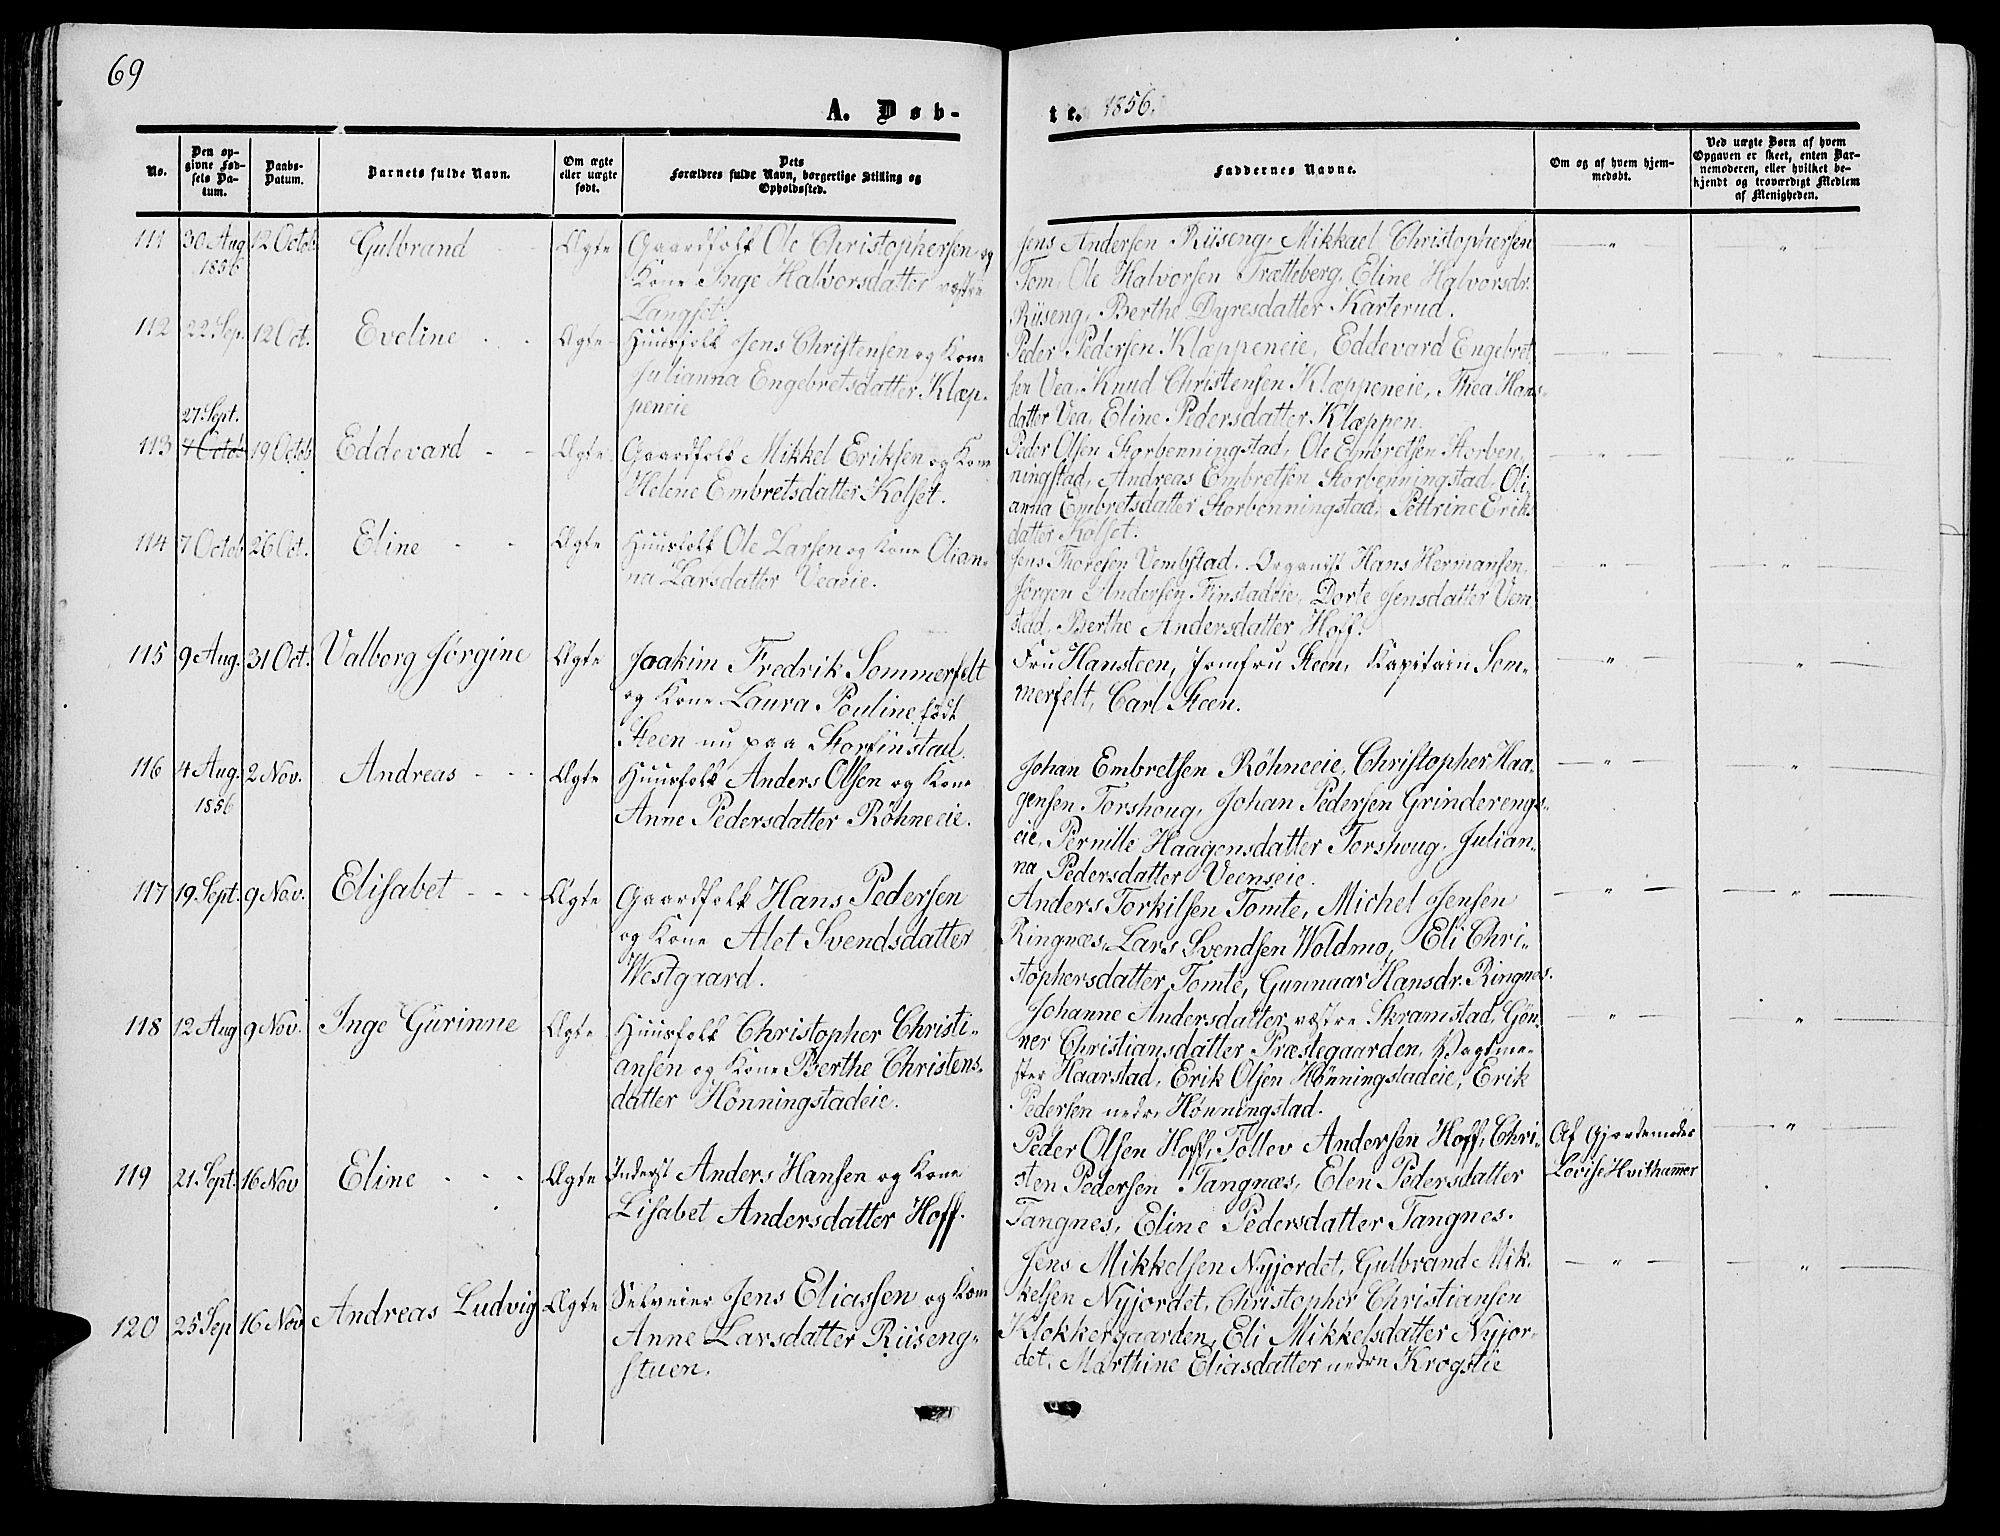 69
A. Døb-
te. 1856.
No.
Den op-
givne Fød-
sels Da-
tum.
Daabs-
Datum.
Barnets fulde Navn.
Om ægte
eller uægte
født.
Dets
Forældres fulde Navn, borgerlige Stilling og
Opholdssted.
Faddernes Navne.
Om og af hvem hjem-
medøbt.
Ved uægte Børn af hvem
Opgaven er skeet, enten Bar-
nemoderen, eller hvilket be-
kjendt og troværdigt Medlem
af Menigheden.
111 30 Aug 1856 12 Octob Gulbrand - - Ægte
Gaardfolk Ole Christophersen og
Kone Inge Halvorsdatter vestre
Langset.
Jens Andersen Riiseng, Mikkael Christophersen
Tom, Ole Halvorsen Trætteberg, Eline Halvorsdr.
Riiseng, Berthe Dyresdatter Karterud.
— " — "
112 22 Sep. 12 Oct. Eveline - - Ægte
Huusfolk Jens Christensen og Kone
Julianna Engebretsdatter Klæp-
peneie
Peder Pedersen Klæppeneie, Eddevard Engebret
sen Vea, Knud Christensen Klæppeneie, Thea Hans-
datter Vea, Eline Pedersdatter Klæppen.
— " — — " —
27 Sept.
113 7 Octob 19 Octob Eddevard - - Ægte
Gaardfolk Mikkel Eriksen og Kone
Helene Embretsdatter Kolset.
Peder Olsen Storbenningstad, Ole Embretsen Storben-
ningstad, Andreas Embretsen Storbenningstad, Oli-
anna Embretsdatter Storbenningstad, Pettrine Eriks
datter Kolset.
— " — — " —
114 7 Octob 26 Oct. Eline - - Ægte
Huusfolk Ole Larsen og Kone Olian-
na Larsdatter Veaeie.
Jens Thoresen Vembstad. Organist Hans Hermansen,
Jørgen Andersen Finstadeie, Dorte Jensdatter Vem
stad, Berthe Andersdatter Hoff.
— " — — " —
115 9 Aug. 31 Oct. Valborg Jørgine Ægte
Joakim Fredrik Sommerfelt
og Kone Laura Pouline født
Steen nu paa Storfinstad.
Fru Hansteen, Jomfru Steen, Kapitain Som-
merfelt, Carl Steen.
— " — — " —
116 4 Aug. 1856 2 Nov. Andreas - - - Ægte
Huusfolk Anders Olsen og Kone
Anne Pedersdatter Röhneeie.
Johan Embretsen Röhneeie, Christopher Haa-
gensen Torshoug, Johan Pedersen Grinderengs-
eie, Pernille Haagensdatter Torshoug, Julian-
na Pedersdatter Veenseie.
— " — — " —
117 19 Sept. 9 Nov. Elisabet - - - Ægte
Gaardfolk Hans Pedersen
og Kone Alet Svendsdatter
Westgaard.
Anders Torkilsen Tomte, Michel Jensen
Ringnæs, Lars Svendsen Woldmo, Eli Chri-
stophersdatter Tomte, Gunnaar Hansdr. Ringnes.
— " — — " —
118 12 Aug 9 Nov. Inge Gurinne Ægte
Huusfolk Christopher Christi-
ansen og Kone Berthe Christens-
datter Hönningstadeie.
Johanne Andersdatter vestre Skramstad, Gön-
ner Christiansdatter Præstegaarden, Vagtme-
ster Haarstad, Erik Olsen Hönningstadeie, Erik
Pedersen nedre Hönningstad.
— " — — " —
119 21 Sept. 16 Nov Eline - - - Ægte
Inderst Anders Hansen og Kone
Lisabet Andersdatter Hoff.
Peder Olsen Hoff, Tollev Andersen Hoff, Chri-
sten Pedersen Tangnæs, Elen Pedersdatter
Tangnes, Eline Pedersdatter Tangnes.
Af Gjordemoder
Lovise Hvithammer
— " —
120 25 Sep 16 Nov Andreas Ludvig Ægte
Selveier Jens Eliassen og Kone
Anne Larsdatter Riiseng-
stuen.
Jens Mikkelsen Nyjordet, Gulbrand Mik-
kelsen Nyjordet, Christopher Christiansen
Klokkergaarden, Eli Mikkelsdatter Nyjor-
det, Marthine Eliasdatter nedre Krogstie
— " — — " —